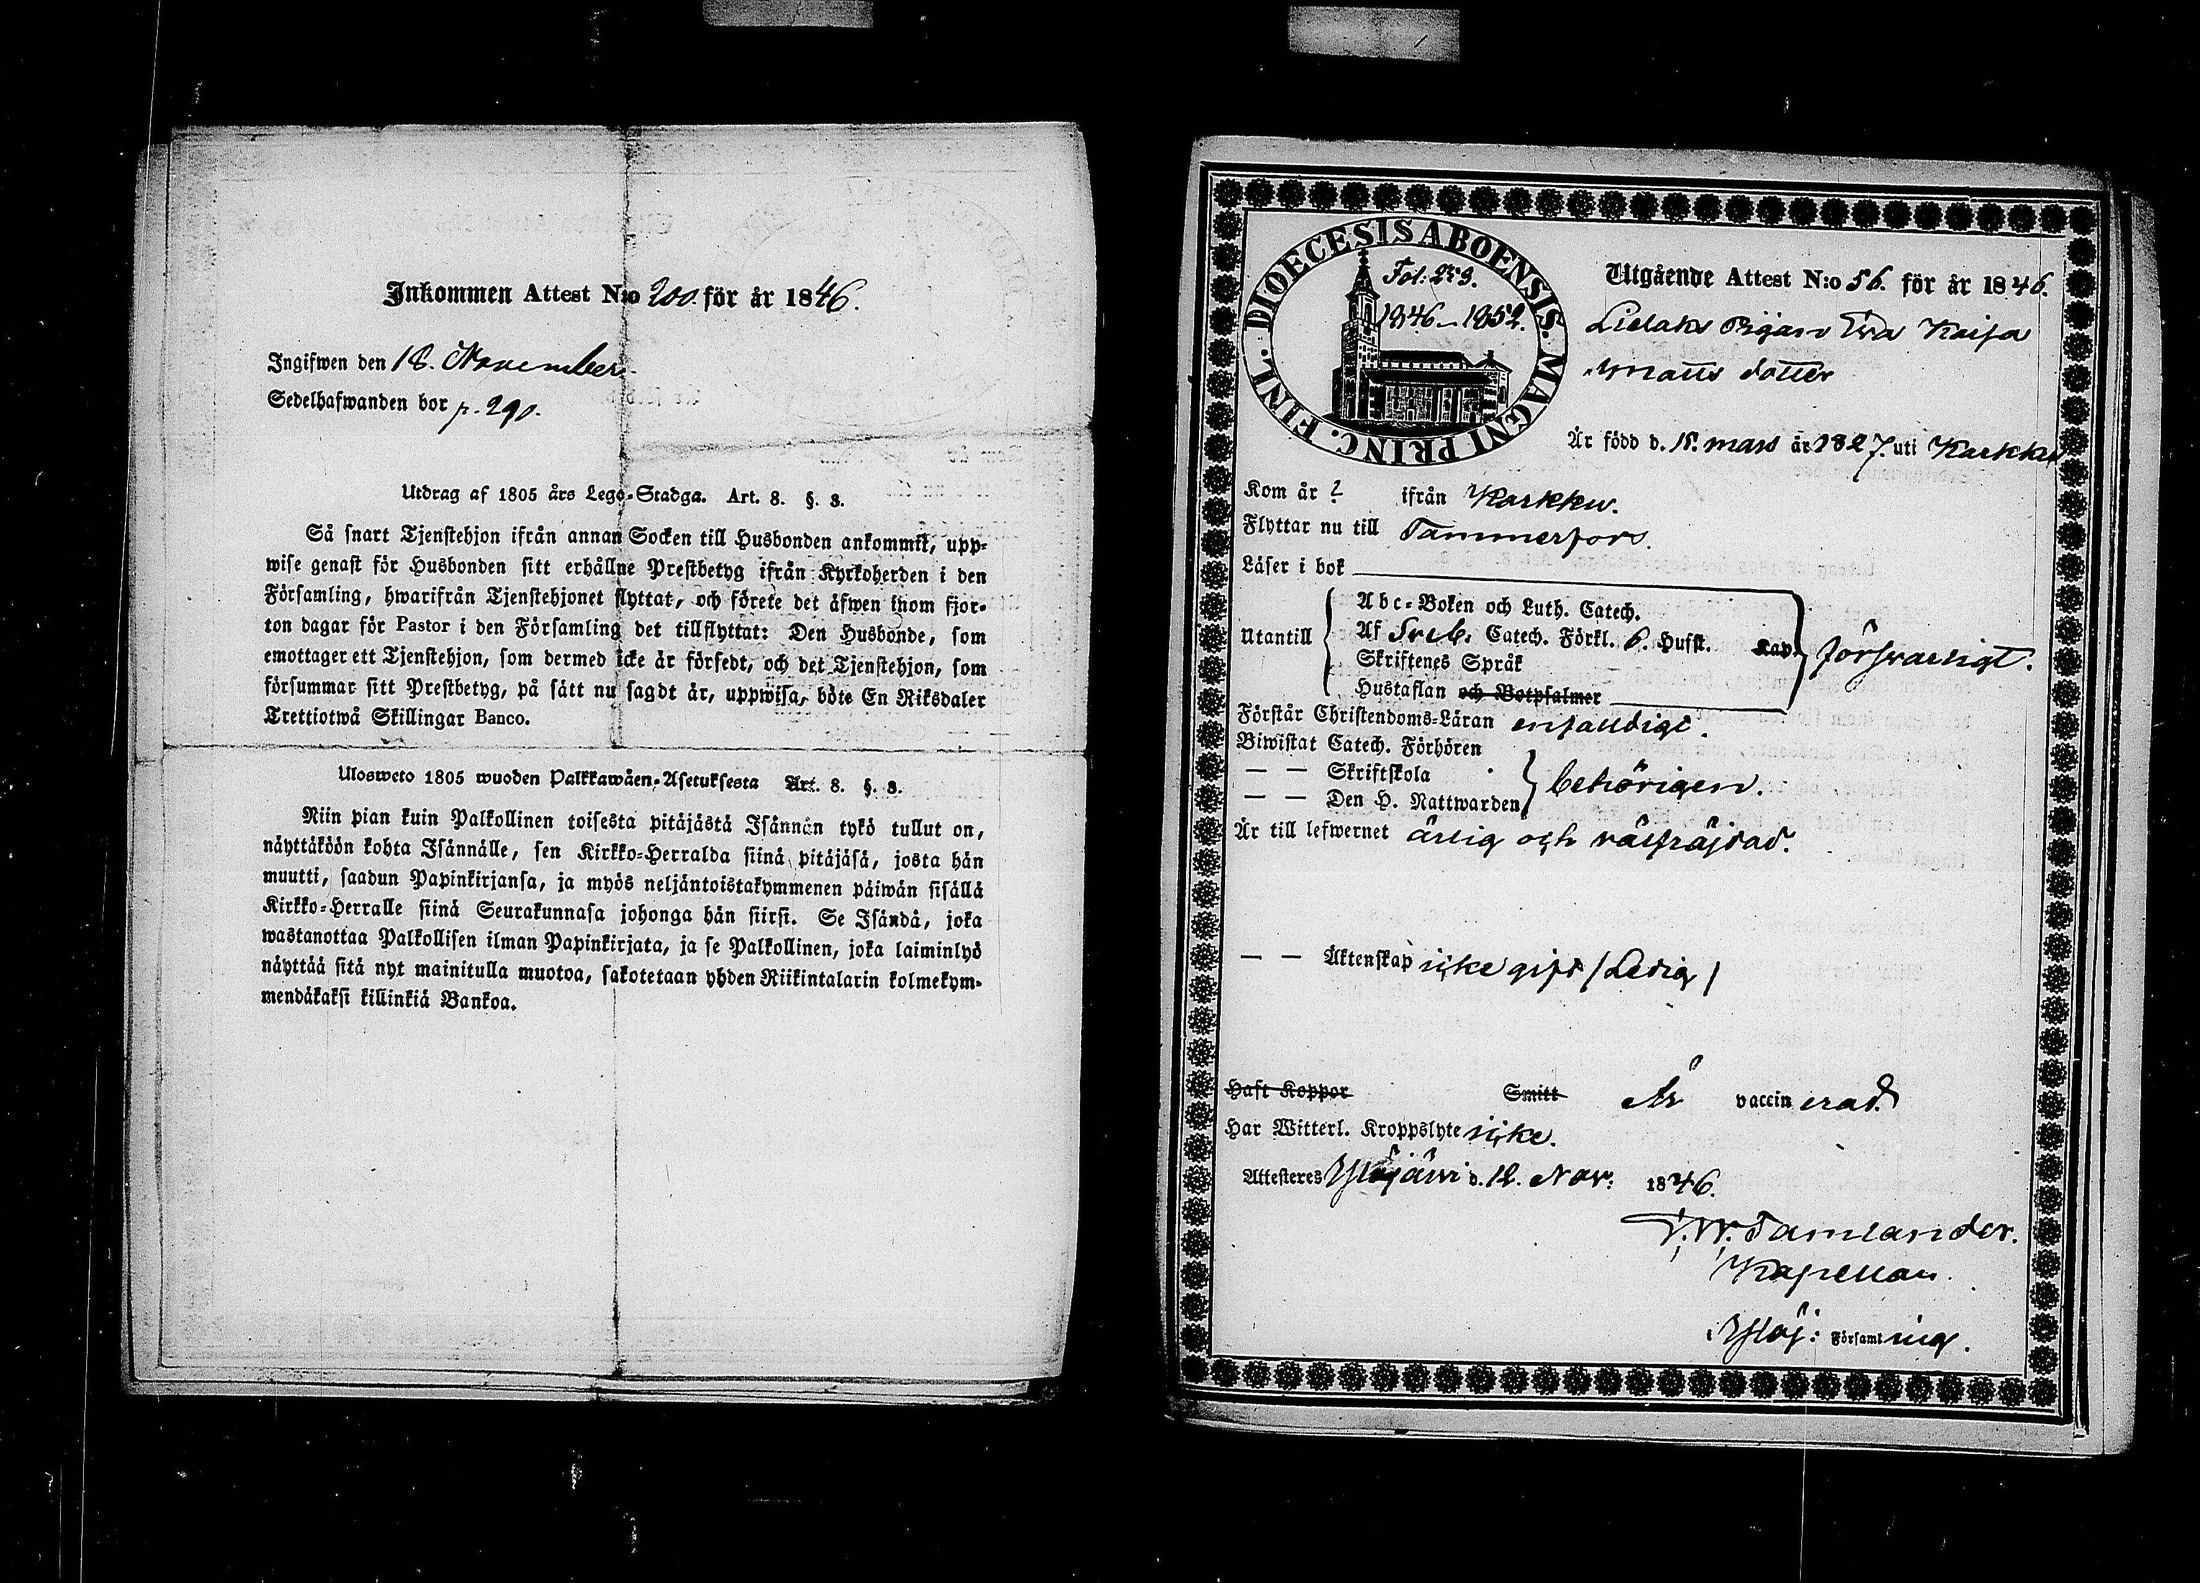 Inkommen Attest N:o 200. för år 1846.
Ingifwen den 18. November.
Sedelhafwanden bor p. 290.
Utdrag af 1805 års Lego-Stadga. Art. 8. §. 3.
Så snart Tjenstehjon ifrån annan Socken till Husbonden ankommit, upp-
wise genast för Husbonden sitt erhållne Prestbetyg ifrån Kyrkoherden i den
Församling, hwarifrån Tjenstehjonet flyttat, och förete det äfwen inom fjor-
ton dagar för Pastor i den Församling det tillflyttat: Den Husbonde, som
emottager ett Tjenstehjon, som dermed icke är försedt, och det Tjenstehjon, som
försummar sitt Prestbetyg, på sätt nu sagdt är, uppwisa, böte En Riksdaler
Trettiotwå Skillingar Banco.
Ulosweto 1805 wuoden Palkkawäen-Asetuksesta Art. 8. §. 3.
Niin pian kuin Palkollinen toisesta pitäjästä Isännän tykö tullut on,
näyttäköön kohta Isännälle, sen Kirkko-Herralda siinä pitäjäsä, josta hän
muutti, saadun Papinkirjansa, ja myös neljäntoistakymmenen päiwän sisällä
Kirkko-Herralle siinä Seurakunnasa johonga hän siirsi. Se Isändä, joka
wastanottaa Palkollisen ilman Papinkirjata, ja se Palkollinen, joka laiminlyö
näyttää sitä nyt mainitulla muotoa, sakotetaan yhden Riikintalarin kolmekym-
mendäkaksi killinkiä Bankoa.
DIOECESIS ABOENSIS. MAGNI PRINC. FINL.
Fol: 253.
1846-1852.
Utgående Attest N:o 56. för år 1846.
Pigan Eva Kaisa
Matts dotter
Är född d. 15. mars år 1827. uti Karkku
Kom år ? ifrån Karkku.
Flyttar nu till Tammerfors.
Läser i bok
Utantill
Abc-Boken och Luth. Catech.
Af Sveb. Catech. Förkl. 6. Hufst. Kap.
Skriftenes Språk
Hustaflan och Botpsalmer
försvarligt.
Förstår Christendoms-Läran enfaldigt.
Biwistat Catech. Förhören
— — Skriftskola
— — Den H. Nattwarden
behörigen.
Är till lefwernet ärlig och välfräjdad.
— — Äktenskap icke gift / Ledig /
Haft Koppor Smitt Är vaccinerad.
Har Witterl. Kroppslyte icke.
Attesteres Ylöjärvi d. 12. Nov. 1846.
Tamlander.
Kapellan
i Ylöj: Församling.